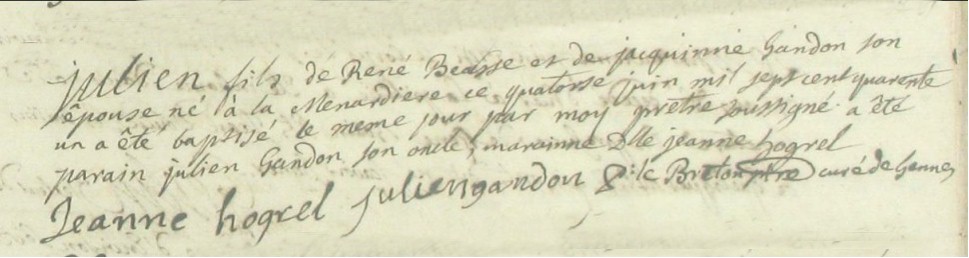 julien fils de René Beasse et de jacquinne Gandon son
épouse né à la Menardiere ce quatorse juin mil sept cent quarente
un a été baptisé le meme jour par moy prêtre soussigné a été
parain julien Gandon son oncle, marainne Dlle jeanne hogrel
Jeanne hogrel julien gandon le Breton ptre curé de Gennes